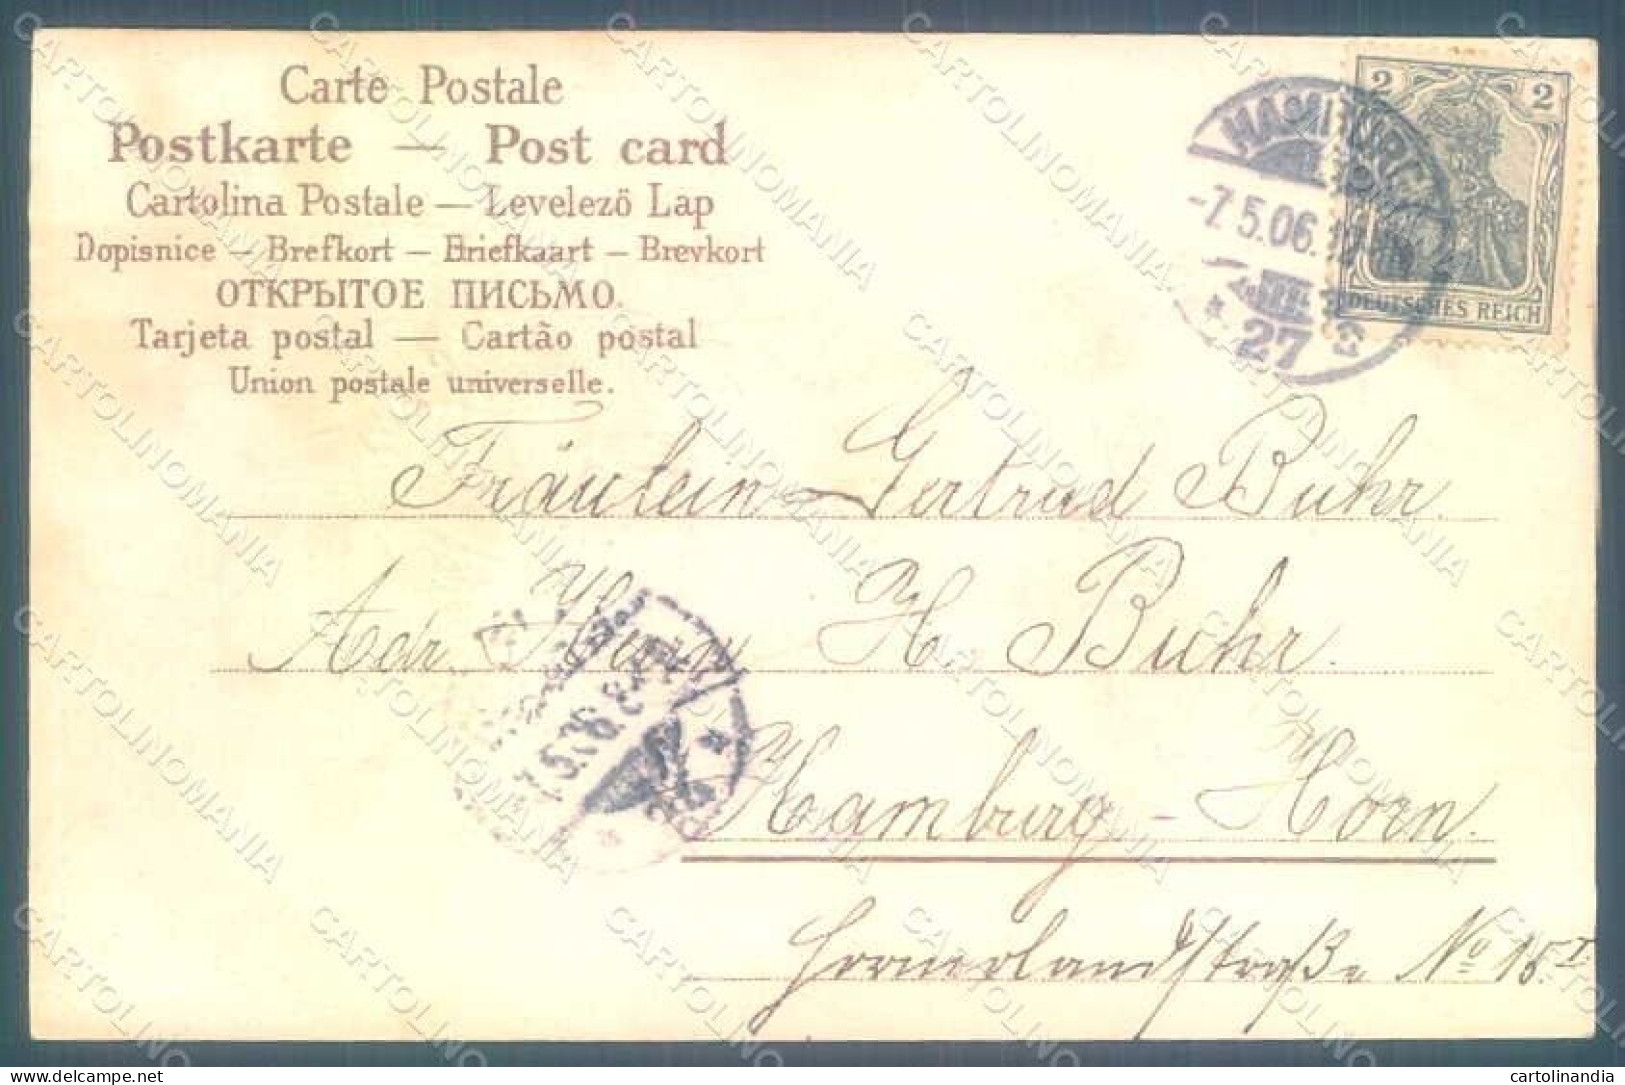 Carte Postale
Postkarte — Post card
Cartolina Postale — Levelezö Lap
Dopisnice — Brefkort — Briefkaart — Brevkort
ОТКРЫТОЕ ПИСЬМО.
Tarjeta postal — Cartão postal
Union postale universelle.
2 2
DEUTSCHES REICH
-7.5.06.
27
Fräulein Gertrud Buhr.
Adr. Herrn H Buhr.
Hamburg - Horn.
Hornerlandstraße No 15 I
CARTOLINOMANIA
delcampe.net
cartolinandia